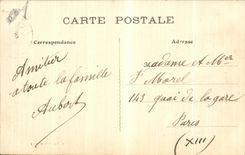 CARTE POSTALE
Correspondance
Adresse
Amitiés
à toute la famille
Aubert
Madame et Mr
F Morel
143 quai de la gare
Paris
(XIII)